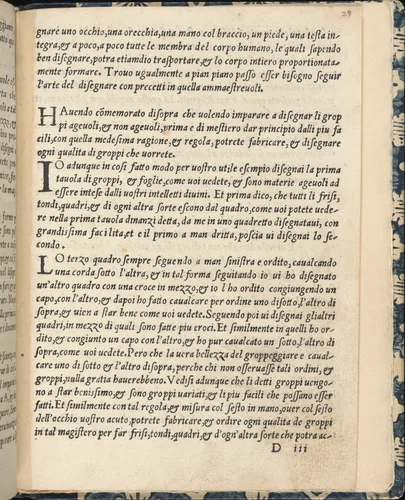 29
gnare uno occhio, una orecchia, una mano col braccio, un piede, una testa in-
tegra, & a poco, a poco tutte le membra del corpo humano, le quali sapendo
ben disegnare, potra etiamdio trasportare, & lo corpo intiero proportionata-
mente formare. Trouo ugualmente a pian piano passo esser bisogno seguir
l'arte del disegnare con precetti in quella ammaestreuoli.
HAuendo cõmemorato disopra che uolendo imparare a disegnar li grop
pi ageuoli, & non ageuoli, prima e di mestiero dar principio dalli piu fa
cili, con quella medesima ragione, & regola, potrete fabricare, & disegnare
ogni qualita di groppi che uorrete.
IO adunque in cosi fatto modo per uostro utile esempio disegnai la prima
tauola di groppi, & foglie, come uoi uedete, & sono materie ageuoli ad
essere intese dalli uostri intelletti diuini. Et prima dico, che tutti li frisi,
tondi, quadri, & di ogni altra sorte escono dal quadro, come uoi potete uede-
re nella prima tauola dinanzi detta, da me in uno quadretto disegnataui, con
grandissima facilita, et e il primo a man dritta, poscia ui disegnai lo se-
condo.
LO terzo quadro sempre seguendo a man sinistra e ordito, caualcando
una corda sotto l'altra, & in tal forma seguitando io ui ho disegnato
un'altro quadro con una croce in mezzo, & io l ho ordito congiungendo un
capo, con l'altro, & dapoi ho fatto caualcare per ordine uno disotto, l'altro di
sopra, & uien a star bene come uoi uedete. Seguendo poi ui disegnai gli altri
quadri, in mezzo di quali sono fatte piu croci. Et similmente in quelli ho or-
dito, & congiunto un capo con l'altro, & ho pur caualcato un sotto, l'altro di
sopra, come uoi uedete. Pero che la uera bellezza del groppeggiare e caual-
care uno di sotto & l'altro disopra, perche chi non osseruasse tali ordini, &
groppi, nulla gratia hauerebbeno. Vedisi adunque che li detti groppi uengo-
no a star benissimo, & sono groppi uariati, & li piu facili che possano esser
fatti. Et similmente con tal regola, & misura col sesto in mano, ouer col sesto
dell'occhio uostro acuto, potrete fabricare, & ordire ogni qualita de groppi
in tal magistero per far frisi, tondi, quadri, & d'ogn'altra sorte che potra ac-
D iii